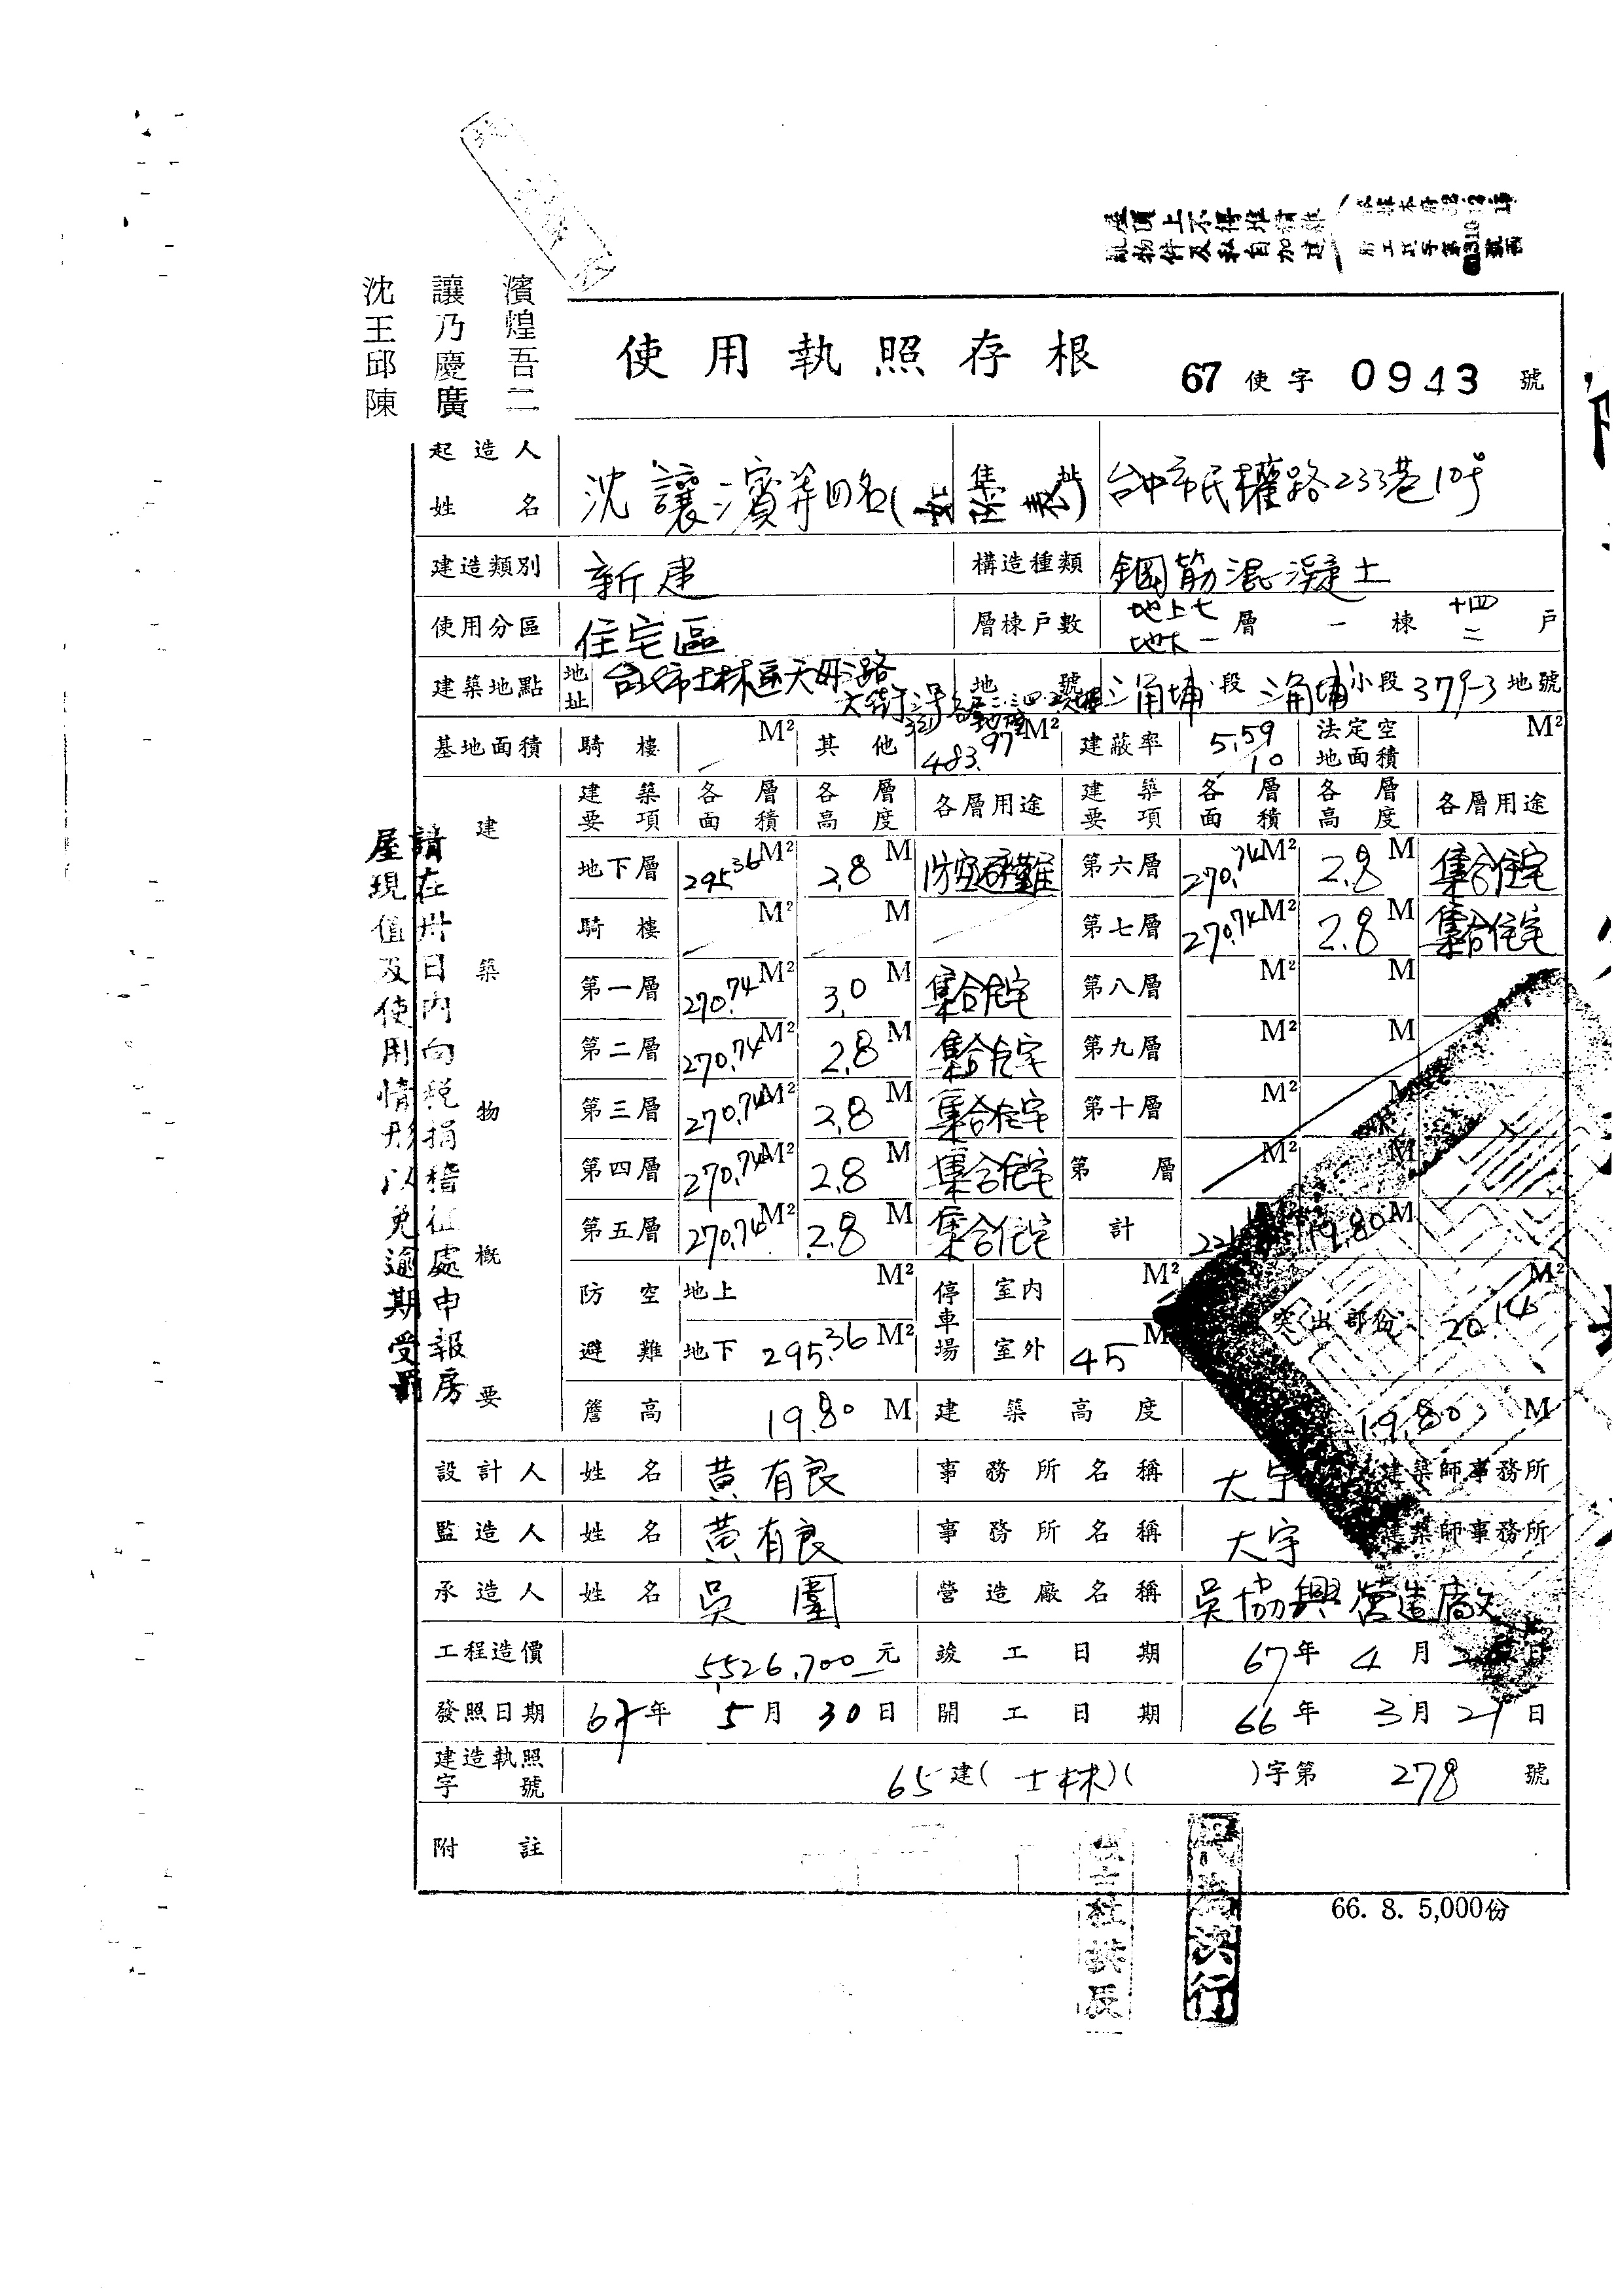 屋頂上不得堆積雜
亂物件及私自加建
沈讓濱
王乃煌
邱慶吾
陳廣二
使用執照存根
67 使字 0943 號
起造人姓名 沈讓濱等四名 台中市民權路233巷10号
建造類別 新建 構造種類 鋼筋混凝土
使用分區 住宅區 層棟戶數 地上七 地下一 層 一 棟 十四 二 戶
建築地點 地址 台北市士林區天母路 地號 三角埔 段 三角埔 小段 379-3 地號
基地面積 騎樓 M² 其他 483.97 M² 建蔽率 5.59/10 法定空地面積 M²
建築物概要
建築要項 各層面積 各層高度 各層用途 建築要項 各層面積 各層高度 各層用途
地下層 295.36 M² 2.8 M 防空避難 第六層 270.74 M² 2.8 M 集合住宅
騎樓 M² M 第七層 270.74 M² 2.8 M 集合住宅
第一層 270.74 M² 3.0 M 集合住宅 第八層 M² M
第二層 270.74 M² 2.8 M 集合住宅 第九層 M² M
第三層 270.74 M² 2.8 M 集合住宅 第十層 M² M
第四層 270.74 M² 2.8 M 集合住宅 第 層 M² M
第五層 270.74 M² 2.8 M 集合住宅 計 19.80 M
防空避難 地上 M² 停車場 室內 M² 突出部份 20.14 M²
地下 295.36 M² 室外 45 M
簷高 19.80 M 建築高度 19.80 M
設計人 姓名 黃有良 事務所名稱 大宇 建築師事務所
監造人 姓名 黃有良 事務所名稱 大宇 建築師事務所
承造人 姓名 吳圍 營造廠名稱 吳協興營造廠
工程造價 5526,700 元 竣工日期 67年 4月 日
發照日期 67年 5月 30日 開工日期 66年 3月 21日
建造執照字號 65建(士林)( )字第 278 號
附註
請在卅日內向稅捐稽征處申報房
屋現值及使用情形以免逾期受罰
決行
66. 8. 5,000份